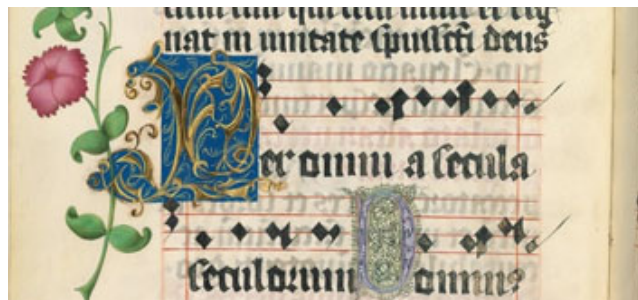 nat in unitate spusscti deus
Per omnia secula
seculorum Domin9